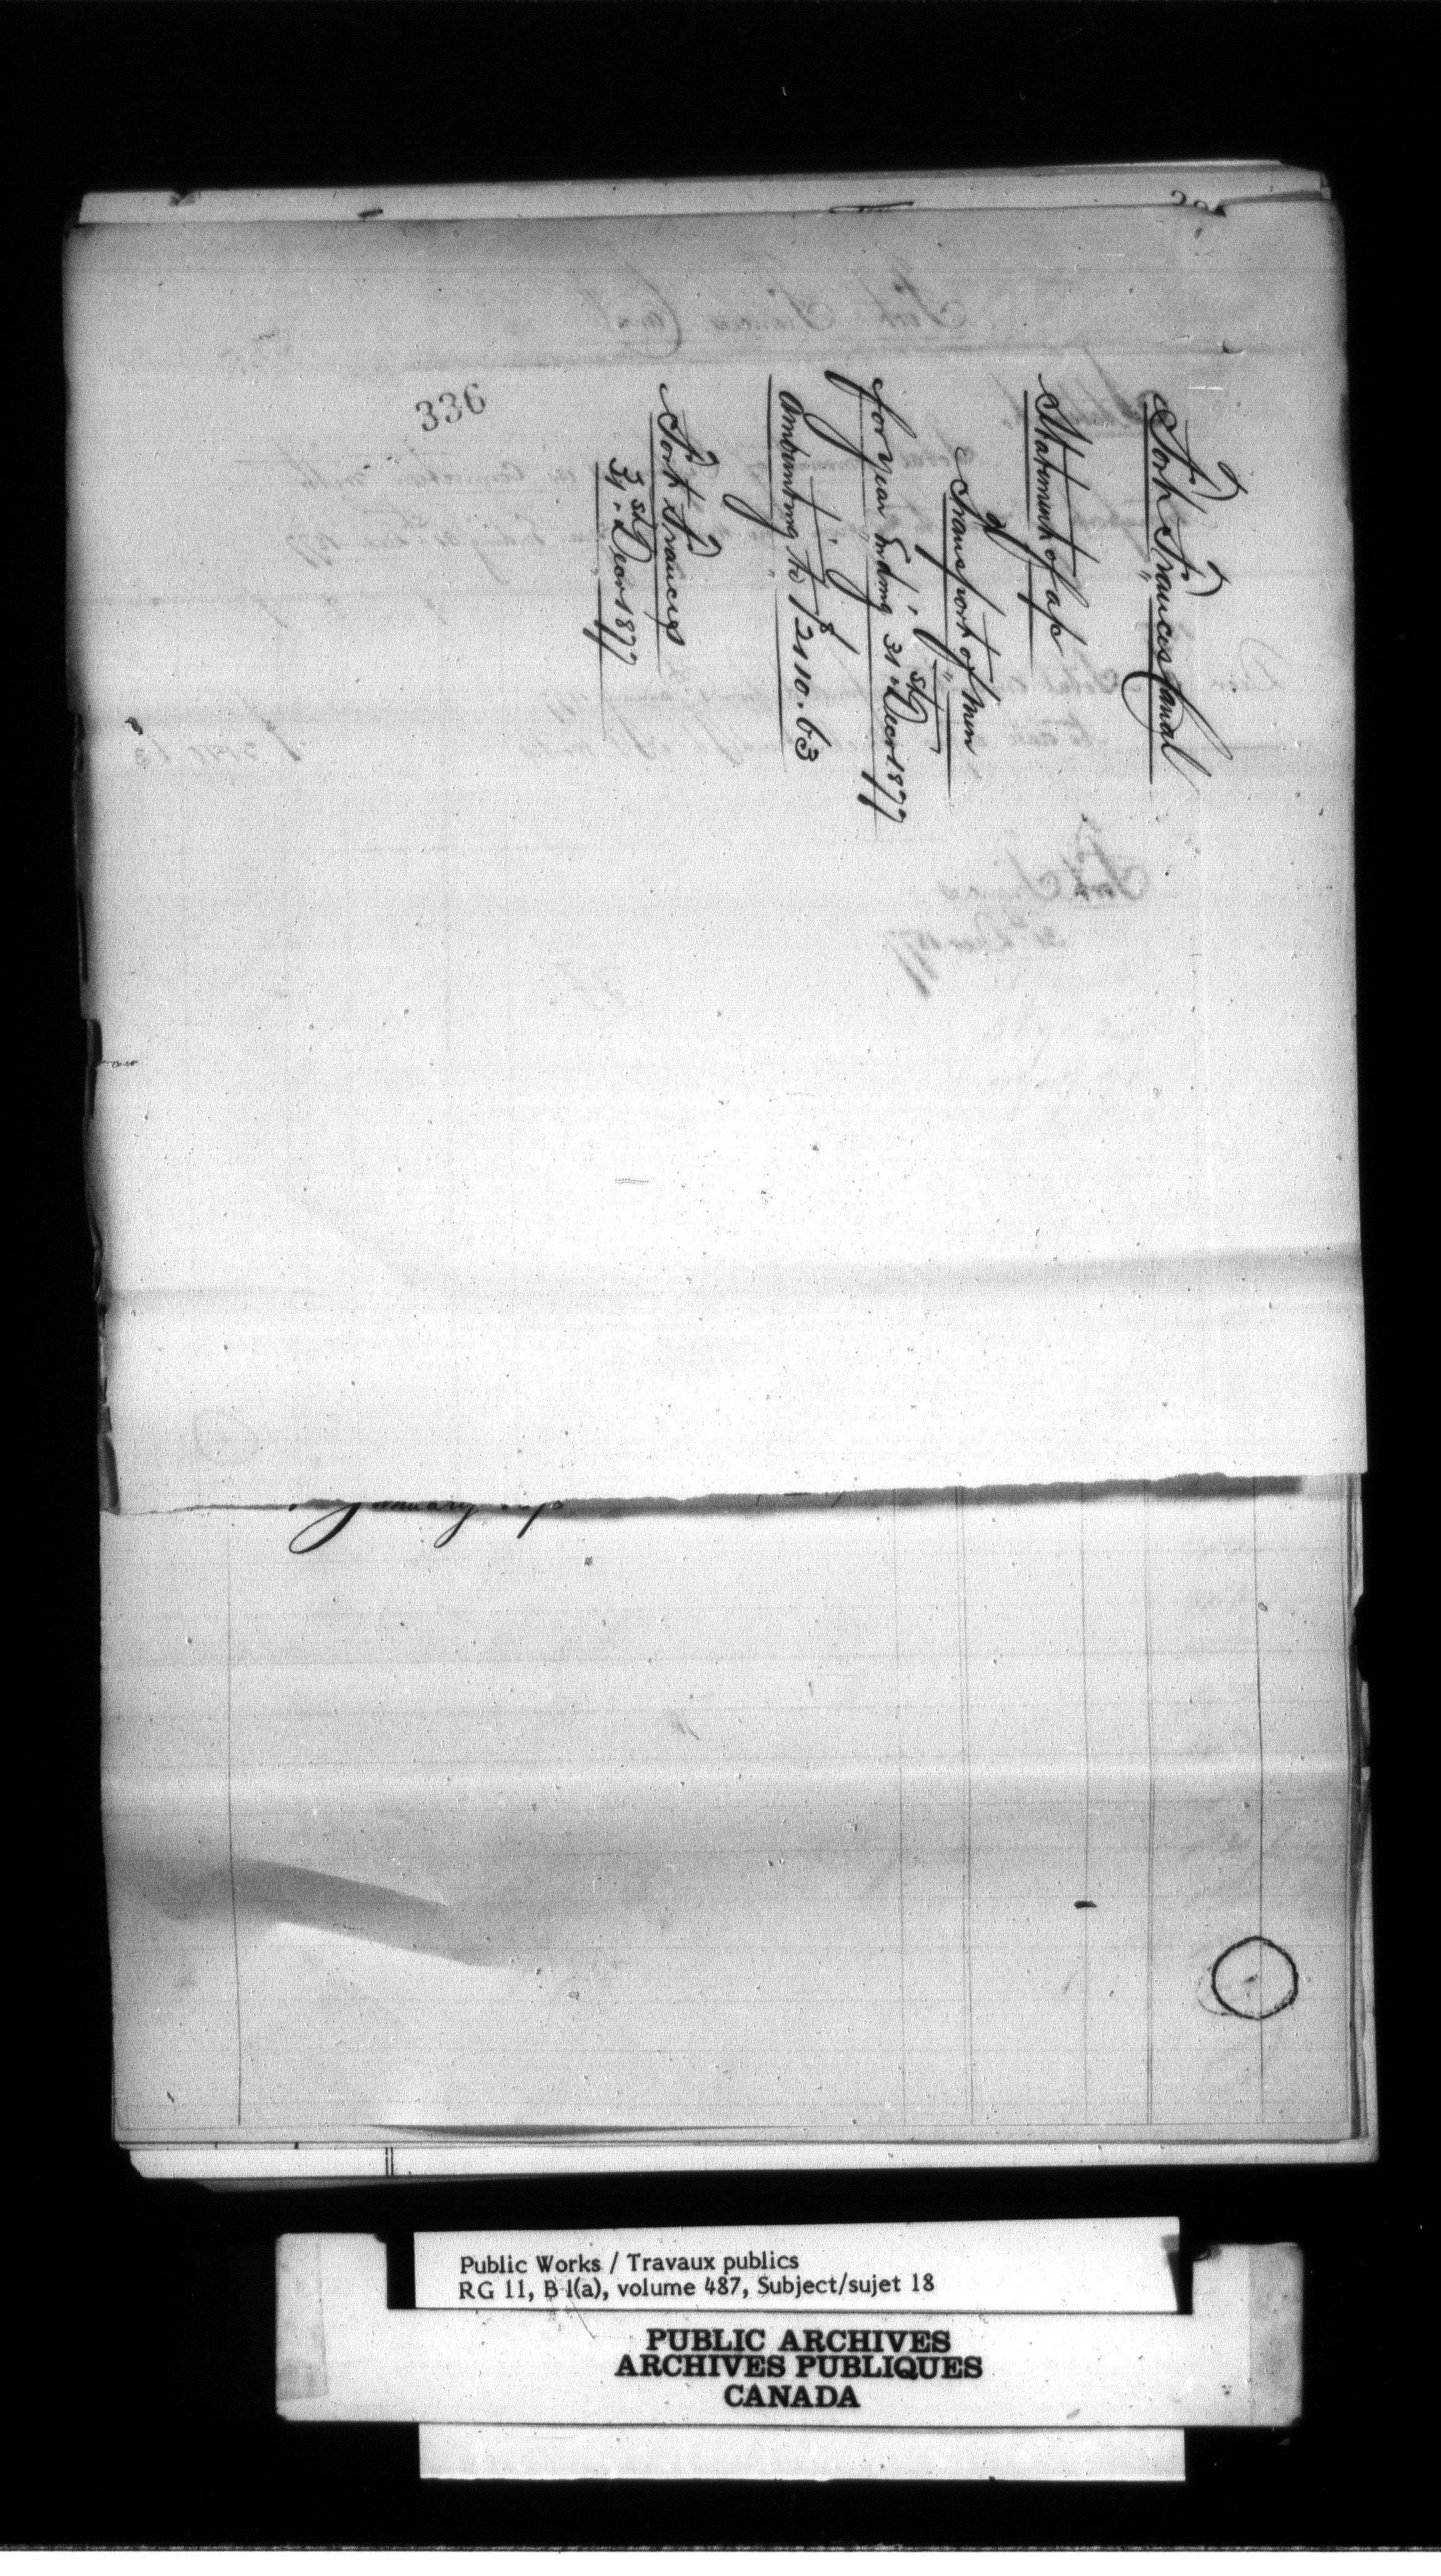 336
Fort Francis Canal
Statement of a/c
of
Transport of Men
for year Ending 31st Decr 1877
Amounting to $2110.63
Fort Francis
31st Decr 1877
January
Public Works / Travaux publics
RG 11, B 1(a), volume 487, Subject/sujet 18
PUBLIC ARCHIVES
ARCHIVES PUBLIQUES
CANADA